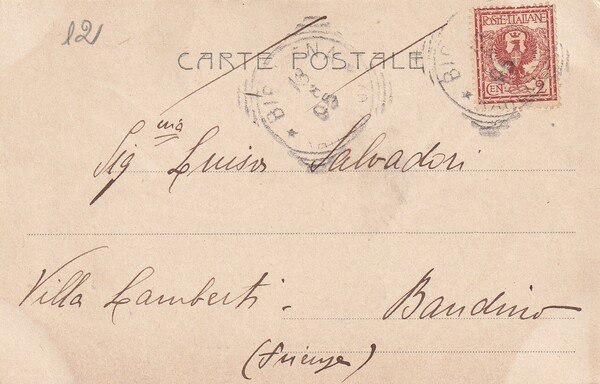 12
CARTE POSTALE
POSTE ITALIANE
CEN. 2
Sig.na Luisa Salvadori
Villa Lamberti - Bandino
(Firenze)